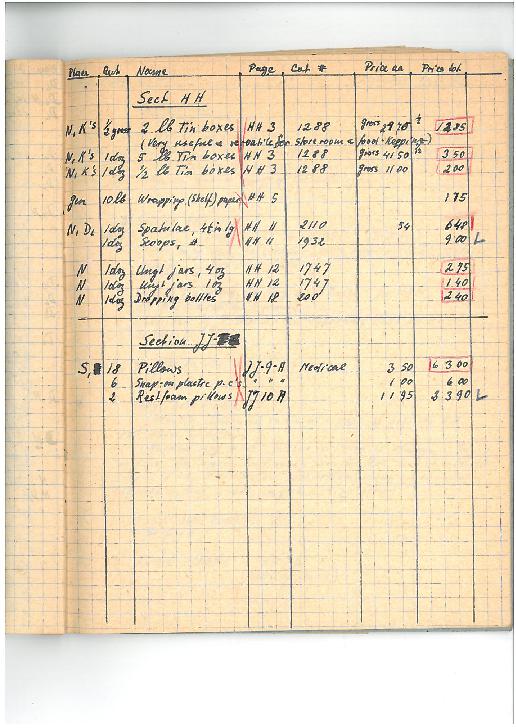 Place Quant Name Page Cat # Price ea Price tot.
Sect HH
N, K's ½ gross 2 lb Tin boxes HH 3 1288 gross 2970 ½ 1285
(Very useful & versatile for storeroom & food-keeping)
N, K's 1 doz 5 lb Tin boxes HH 3 1288 gross 4150 ½ 350
N, K's 1 doz ½ lb Tin boxes HH 3 1288 gross 1100 200
gen 10 lb Wrapping (shelf) paper HH 5 175
N, D, 1 doz Spatulae, 4 in lg HH 11 2110 54 648
1 doz Scoops, HH 11 1932 900
N 1 doz Ungt jars, 4 oz HH 12 1747 275
N 1 doz Ungt jars 1 oz HH 12 1747 140
N 1 doz Dropping bottles HH 18 200 240
Section JJ
S, 18 Pillows JJ-9-A Medical 3 50 63 00
6 Snap-on plastic p.c's " " " 1 00 6 00
2 Restfoam pillows JJ 10 A 11 95 23 90